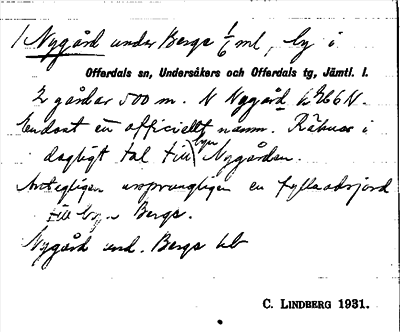 1 Nygård under Bergs 1/6 ml, by i
Offerdals sn, Undersåkers och Offerdals tg, Jämtl. l.
2 gårdar 500 m. N Nygård
Endast ett officiellt namn. Räknas i
dagligt tal till byn Nygården.
Antagligen ursprungligen en
till byn Bergs.
Nygård und. Bergs
C. LINDBERG 1931.